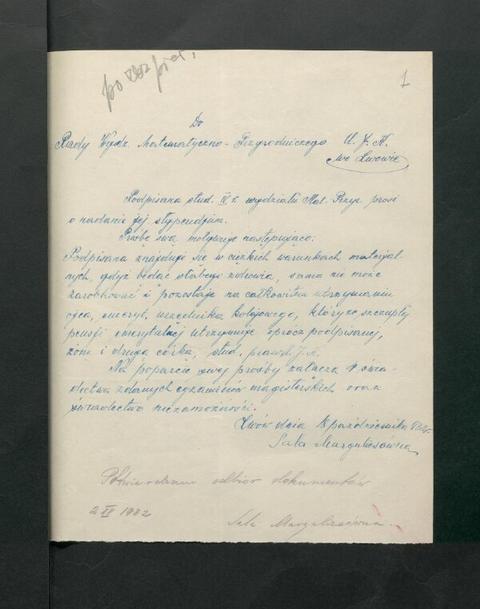 1
Do
Rady Wydz. Matematyczno-Przyrodniczego U. J. K.
we Lwowie
Podpisana stud. IV r. wydziału Mat. Przyr. prosi
o nadanie jej stypendjum.
Prośbę swą motywuje następująco:
Podpisana znajduje się w ciężkich warunkach materjal-
nych, gdyż będąc słabego zdrowia, sama nie może
zarobkować i pozostaje na całkowitem utrzymaniu
ojca, emeryt. urzędnika kolejowego, który ze szczupłej
pensji emerytalnej utrzymuje oprócz podpisanej,
żonę i drugą córkę, stud. prawa
Na poparcie swej prośby załącza świa-
dectwa zdanych egzaminów magisterskich oraz
świadectwo niezamożności.
Lwów dnia października
Sala Margulesówna
Potwierdzam odbiór dokumentów
1932
Sala Margulesówna